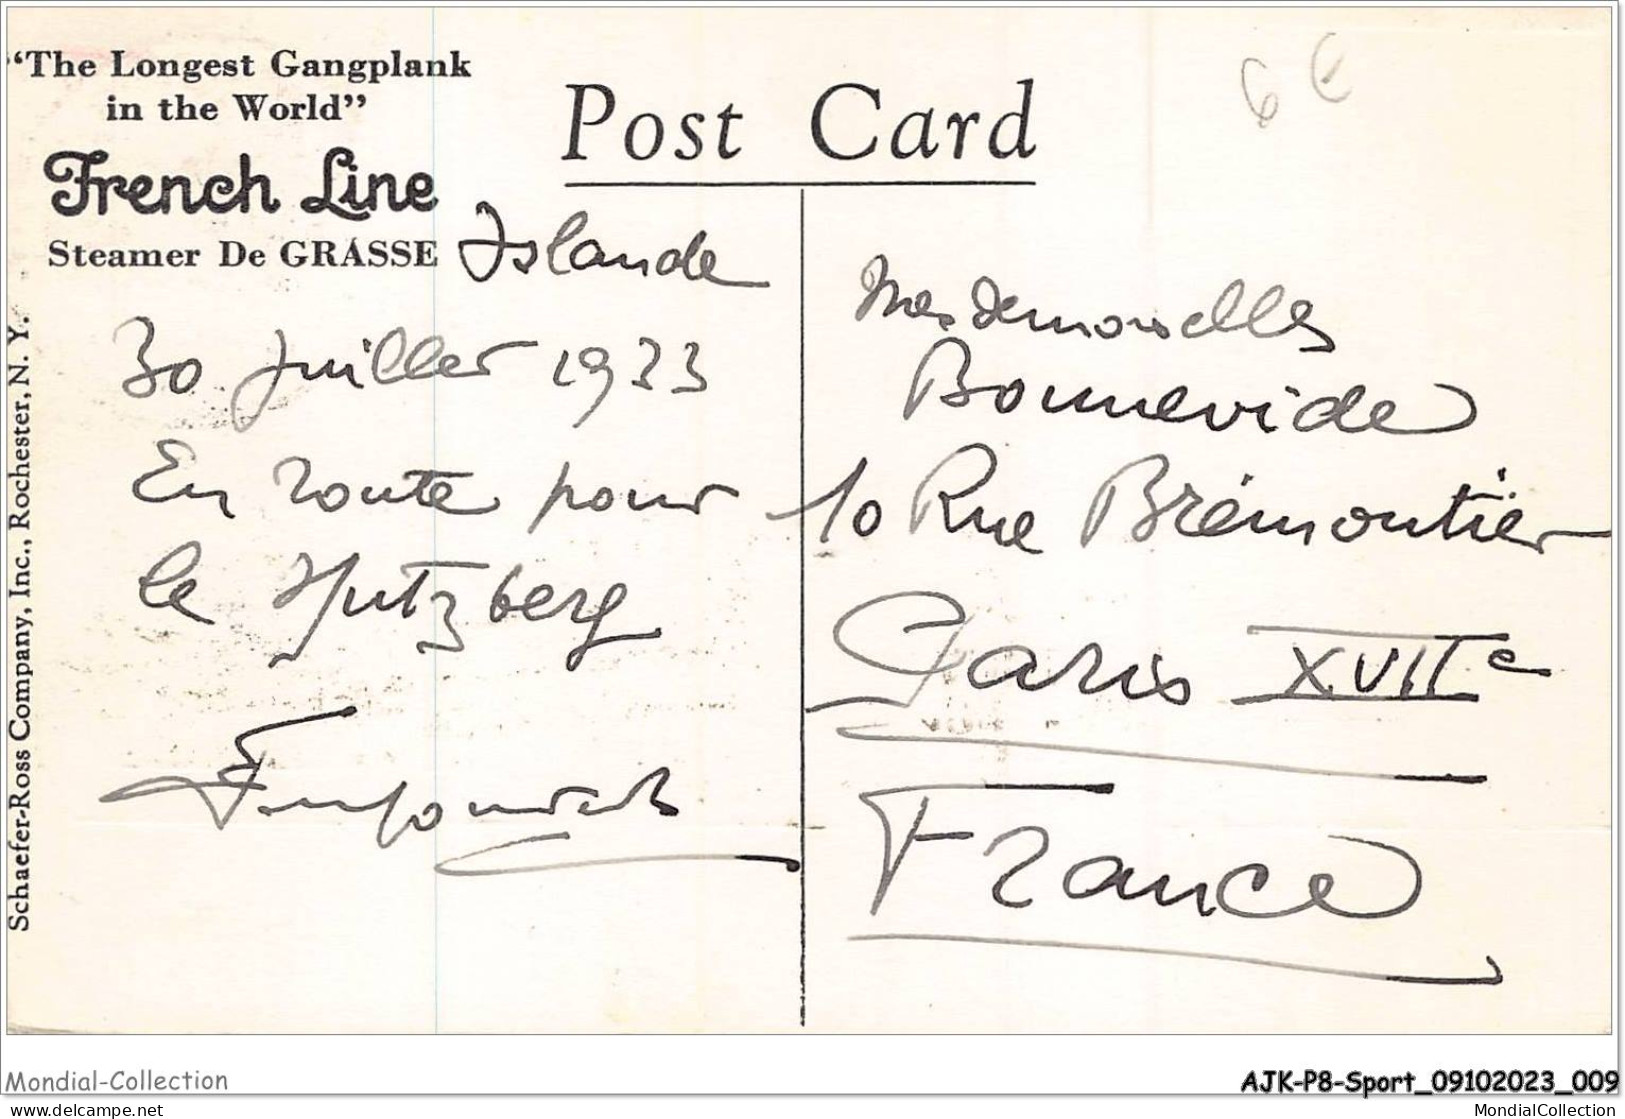 "The Longest Gangplank
in the World"
French Line
Steamer De GRASSE
Post Card
6 €
Islande
30 Juillet 1933
En route pour
le Spitzberg
Mesdemoiselles
Bonnevide
10 Rue Brémontier
Paris XVIIe
France
Schaefer-Ross Company, Inc., Rochester, N. Y.
Mondial-Collection
AJK-P8-Sport_09102023_009
www.delcampe.net
MondialCollection